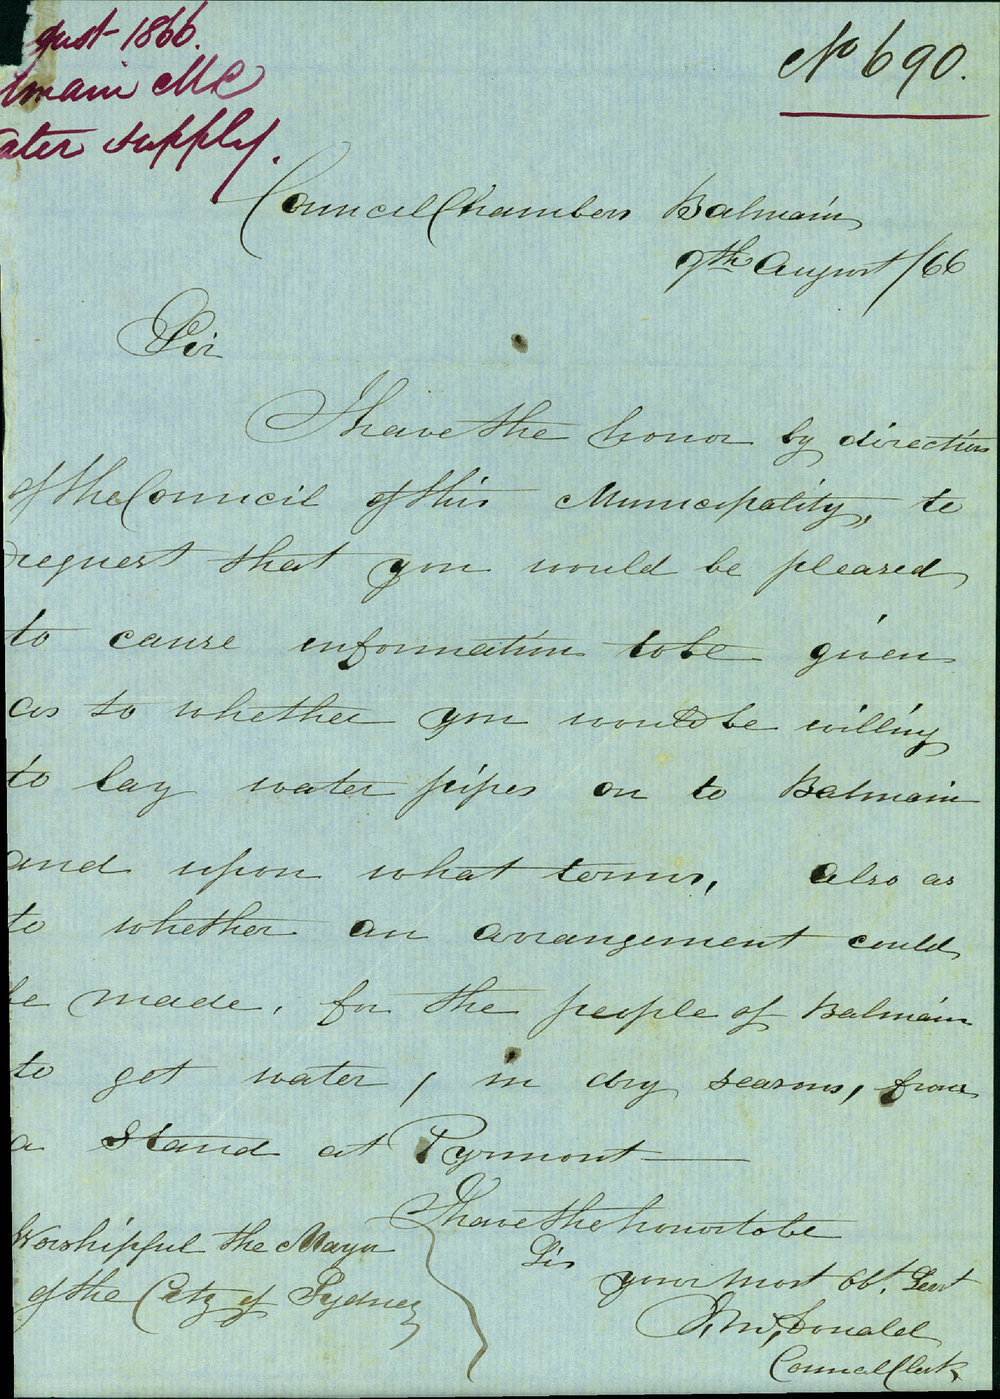 gust 1866.
lmain MC
ater supply.
No 690.
Council Chambers Balmain
9th August /66
Sir
I have the honor by direction
of the Council of this Municipality, to
request that you would be pleased
to cause information to be given
as to whether you would be willing
to lay water pipes on to Balmain
and upon what terms, also as
to whether an arrangement could
be made, for the people of Balmain
to get water, in dry seasons, from
a Stand at Pyrmont
I have the honor to be
Sir
your most obt. Servt
McDonald
Council Clerk
Worshipful the Mayor
of the City of Sydney